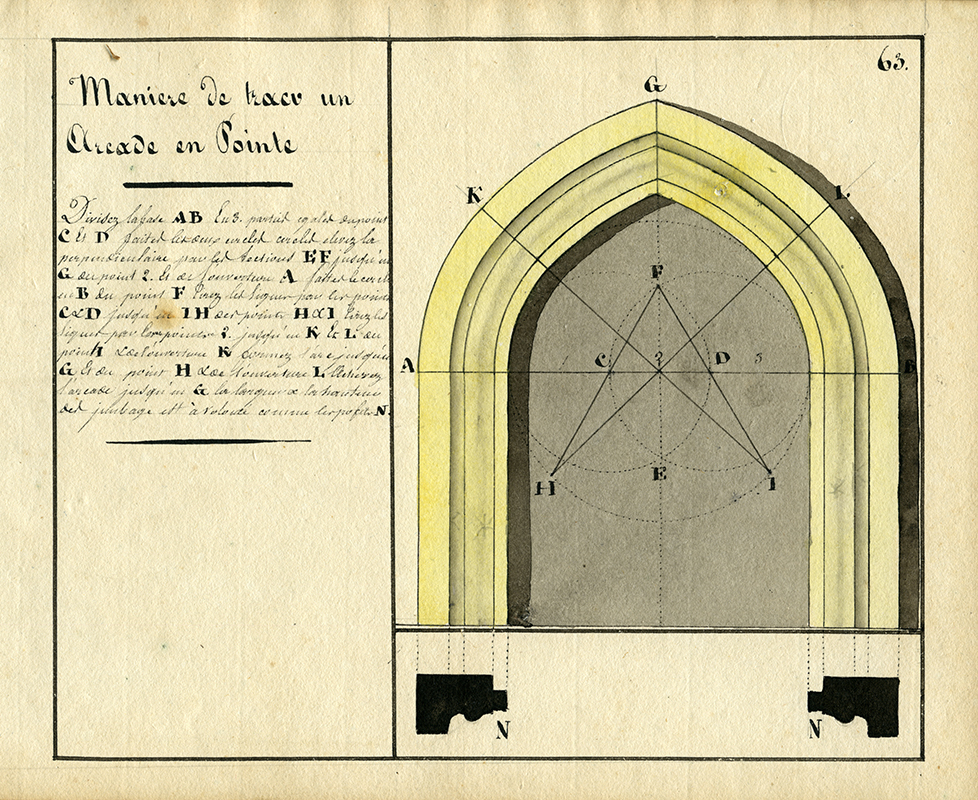 63.
Maniere de tracer un
Arcade en Pointe
Divisez la base AB En 3. partie egales du point
C Et D faites les deux circles circles elevez la
perpendiculaire par les sections EF jusqu'en
G du point 2. Et de l'ouverture A faites le circle
en B du point F tirez les lignes par les points
C & D jusqu'en IH des points H & I tirez les
lignes par les points 2. jusqu'en K Et L du
point I & de l'ouverture K formez l'arc jusqu'en
G Et du point H & de l'ouverture L
l'arcade jusqu'en G la largeur & la hauteur
des est à volonté comme les N.
G
K
L
F
A
1
C
2
D
3
B
H
E
I
N
N